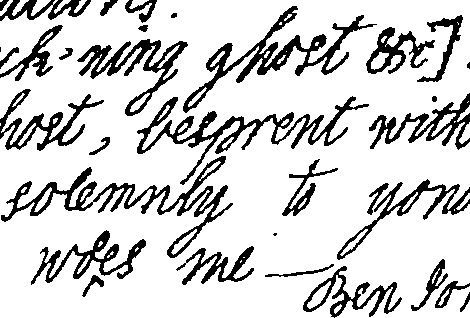 ck'ning ghost &c]
host, besprent with
solemnly to yond
woes me — Ben Jon